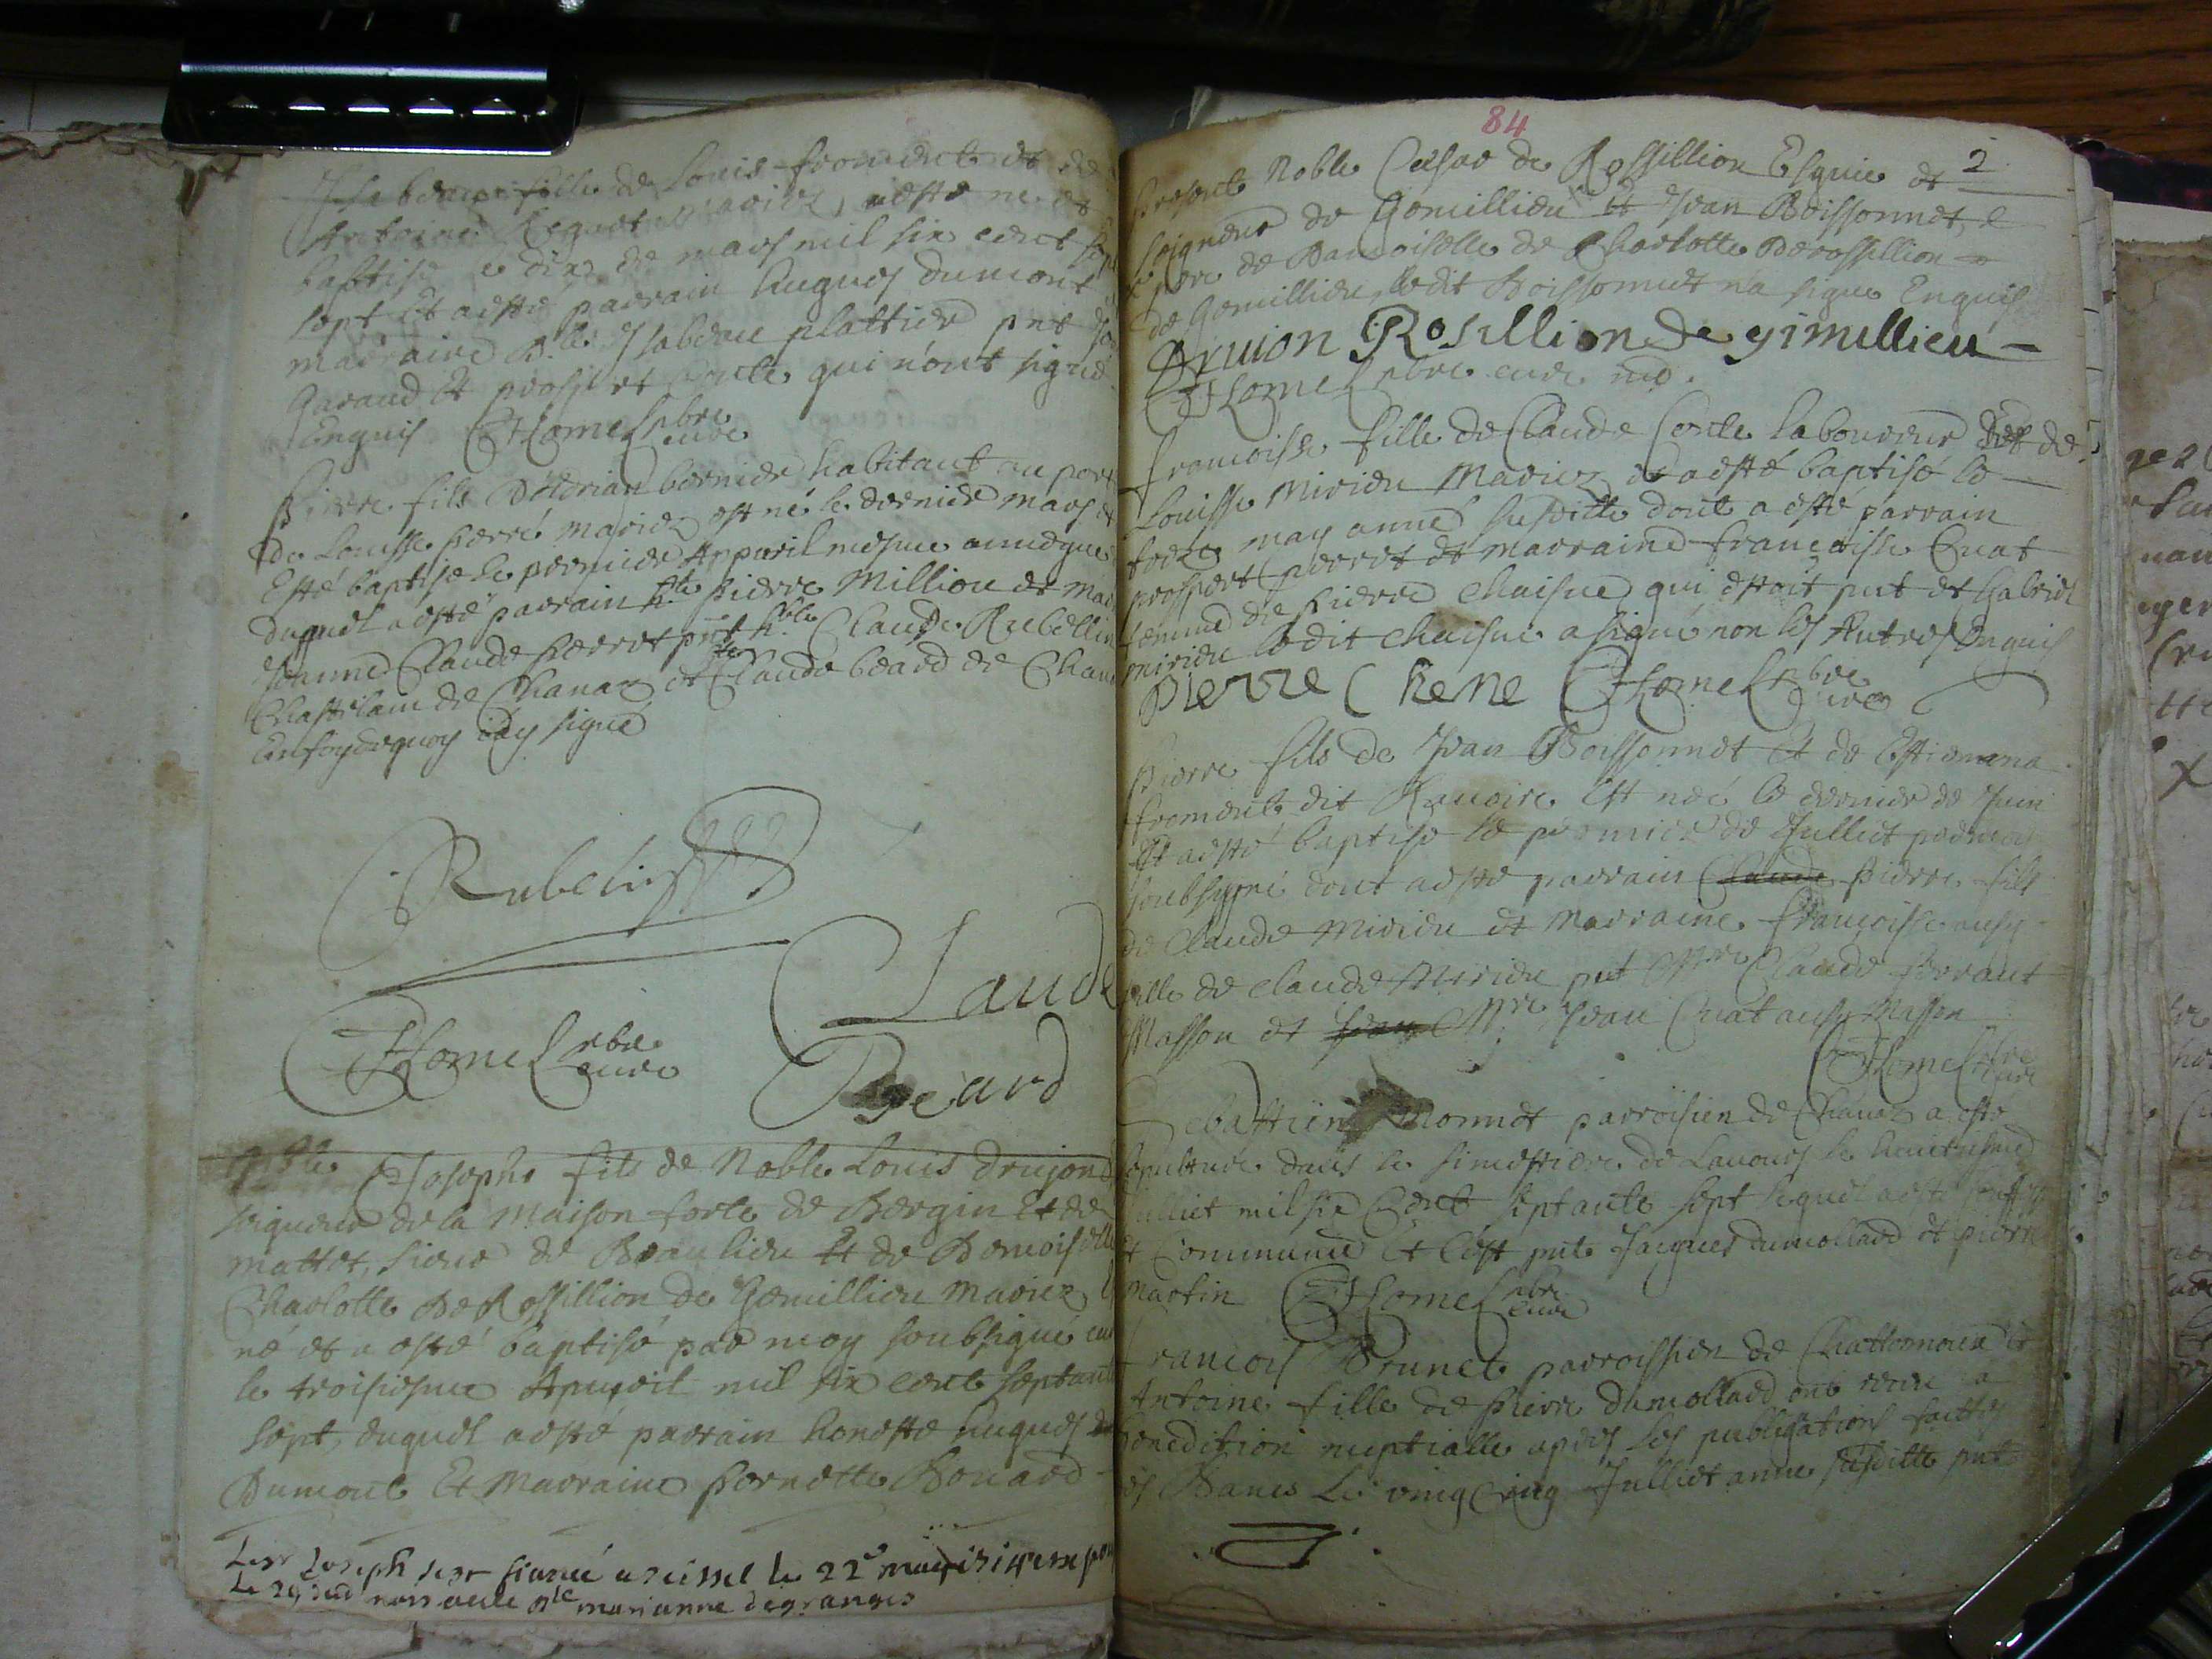 Isabeau fille de Louis froment et de
Antoine mariez, a esté né et
baptisé le dix de mars mil six cent
sept Et a esté parrain hugues dumont
marraine D.lle Isabeau plattier pnt
Garaud et prospert conte qui n'ont signé
Enquis THomeL pbre curé
Pierre fils D'Adrian bernier habitant au port
de Louisse perré mariez est né le dernier mars et
Esté baptisé le premier Appvril mesme année
duquel a esté parrain h.te pierre Million et mar
Claude perrot pnt Claude Rubellin
Chastelain de Chanaz et Claude beard de Chan
En foy de quoy iay signé
Rubelin
Claude
THomeL pbre curé
Beard
Josephe fils de Noble Louis Drujon
seigneur de la Maison forte de Bergin Et de
mattet, sieur de Beaulieu Et de Damoiselle
Charlotte De Rossillion de Gemillieu Mariez
né et a esté baptisé par moy soubsigné curé
le troisiesme Apvril mil six cent septante
sept, duquel a esté parrain honeste hugues
Dumont Et Marraine pernette Bonard
Joseph fiancé a seissel le 22e may 1714
le 29 dud mois avec dlle marianne degranges
84
2
present Noble Cesar de Rossillion Esquier et
seigneur de Gemillieu Et Jean Boissonnet,
pere de Damoiselle de Charlotte De rossillion
de Gemillieu, ledit Boissonnet n'a signe Enquis
Drujon Rosillion de gimillieu
THomeL pbre curé
francoise fille de Claude Conte laboureur Et de
Louisse Mirieu Mariez et a esté baptisé le
treize may année susditte dont a esté parrain
prospert perrot et marraine françoise Cuat
femme de pierre Chaisne qui estoit pnt et Gabriel
mirieu ledit Chaisne a signé non les Autres Enquis
Pierre Chene THomeL pbre curé
Pierre fils de Jean Boissonnet Et de Estienna
froment dit Ravoire Est né le dernier de Juin
Et a esté baptisé le premier de Julliet par moy
soubsigné dont a esté parrain Claude pierre fils
de Claude Mirieu et Marraine françoise aussy
fille de Claude Mirieu pnt Mre Claude perraut
Masson et Jean Mre Jean Cuat aussy Masson
THomeL pbre curé
Sebastien Monnet parroisien de Chanaz a esté
sepulturé dans le simestiere de Lavours le huitiesme
Julliet mil six Cent septante sept lequel a esté
Et Communié Et C'est pnts Jacques dumollard et pierre
Martin THomeL pbre curé
Francois Brunet parroissien de Chattonoux et
Antoine fille de Pierre Dumollard ont receu la
benedition nuptialle apres les publications faittes
es Bancs Le vingt Cinq Julliet année susditte pnt